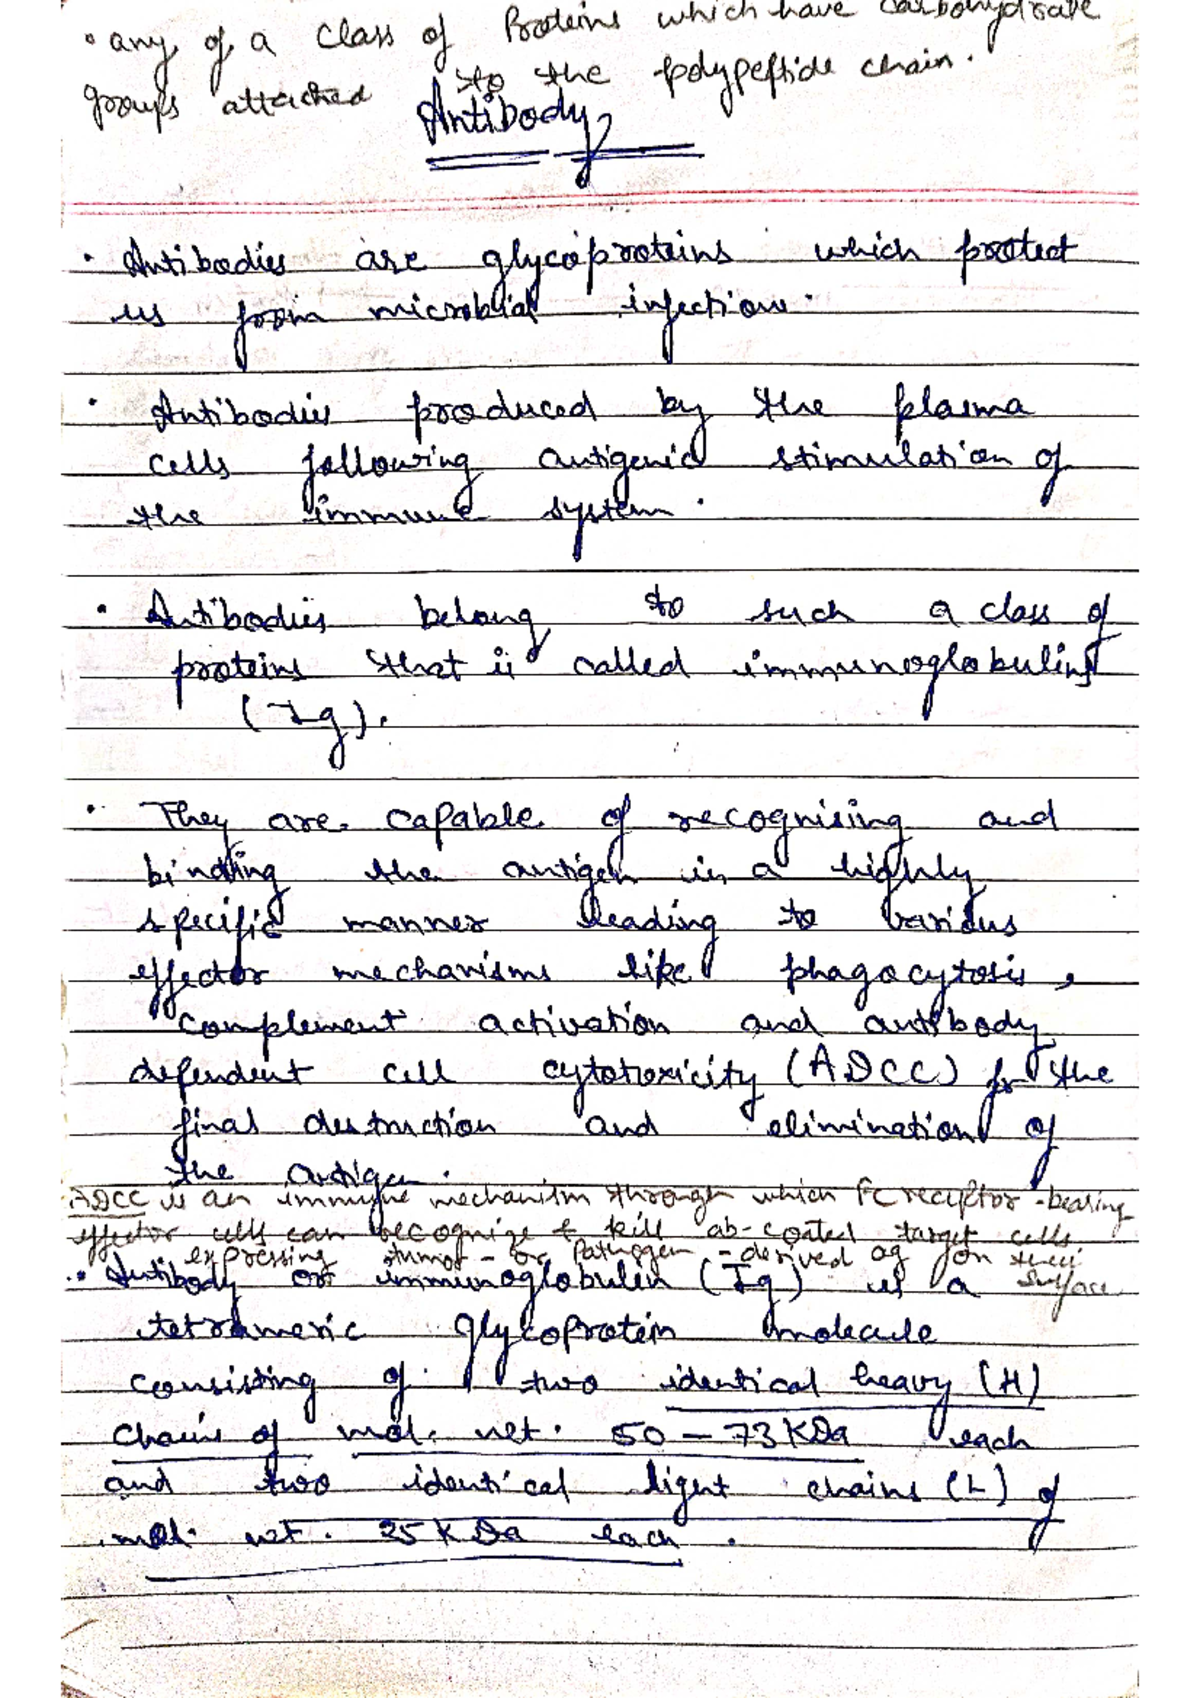 • any of a class of Proteins which have carbohydrate
groups attached to the polypeptide chain.
Antibody
• Antibodies are glycoproteins which protect
us from microbial infection.
• Antibodies produced by the plasma
cells following antigenic stimulation of
the immune system.
• Antibodies belong to such a class of
proteins that is called immunoglobulins
(Ig).
• They are capable of recognising and
binding the antigen in a highly
specific manner leading to various
effector mechanisms like phagocytosis,
complement activation and antibody
dependent cell cytotoxicity (ADCC) for the
final destruction and elimination of
the antigen.
ADCC is an immune mechanism through which FC receptor-bearing
effector cells can recognize & kill ab-coated target cells
expressing tumor - or Pathogen - derived ag on their
surface
• Antibody or immunoglobulin (Ig) is a
tetrameric glycoprotein molecule
consisting of two identical heavy (H)
chains of mol. wt. 50 - 73 KDa each
and two identical light chains (L) of
mol. wt. 25 K Da each.